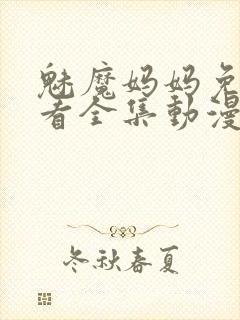 魅魔妈妈免
看全集動漫
冬秋春夏